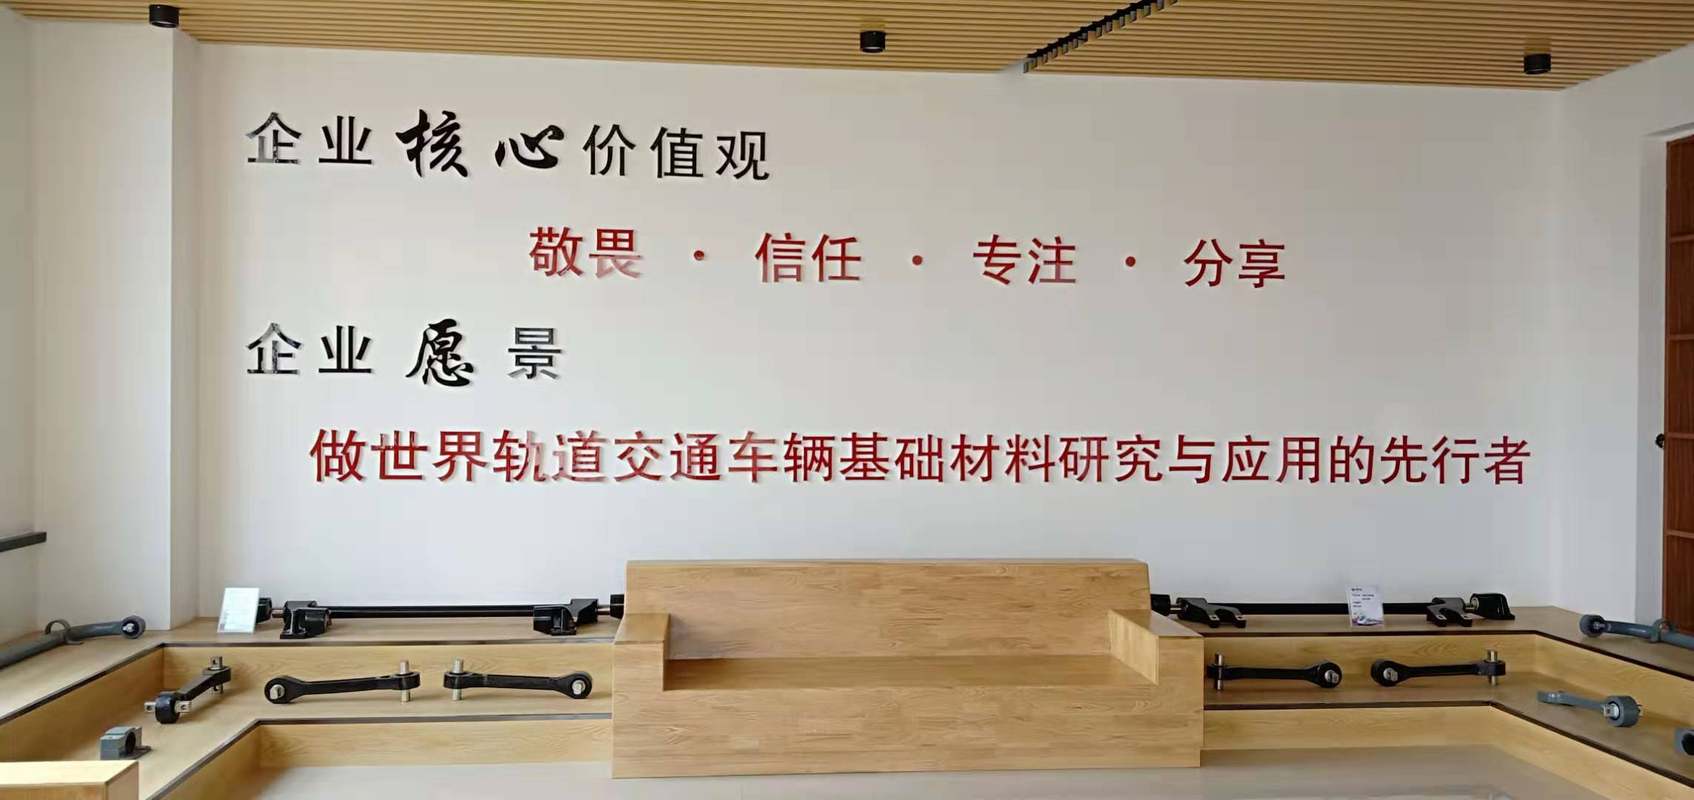 企业核心价值观
敬畏·信任·专注·分享
企业愿景
做世界轨道交通车辆基础材料研究与应用的先行者